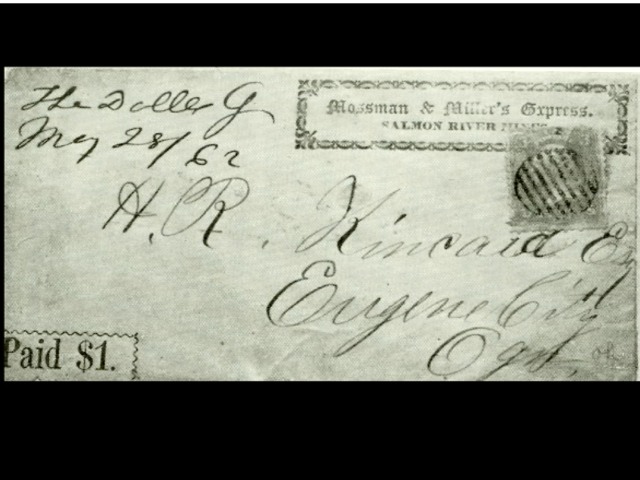 The Dalles O
May 28/62
Mossman & Miller's Express.
SALMON RIVER MINES
H. R. Kincaid Es
Eugene City
Ogn.
Paid $1.